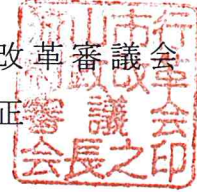 改革審議会
正
山市行
政改革
審議会
会長之印